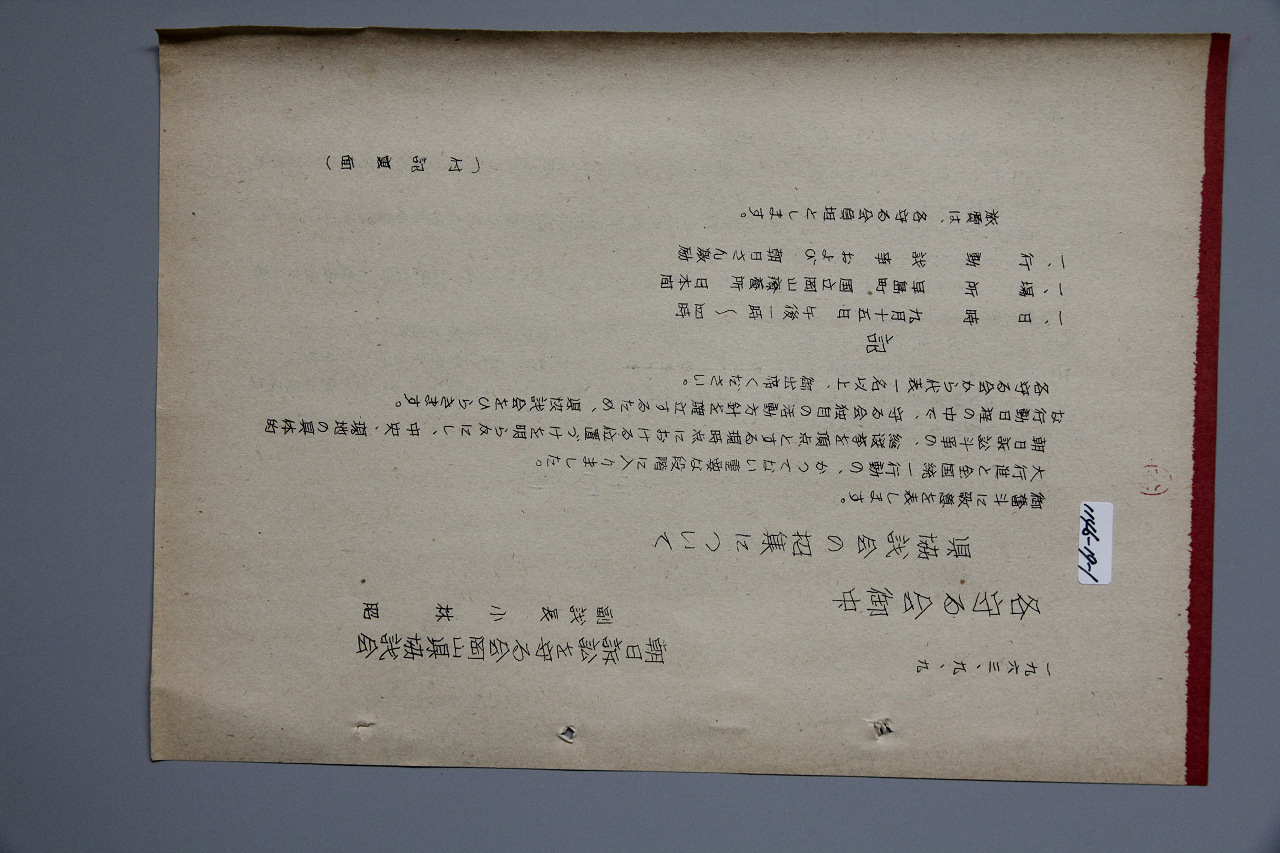 一九六三、九、九
朝日訴訟を守る会岡山県協議会
副議長 小林 昭
各守る会御中
県協議会の招集について
御奮斗に敬意を表します。
大行進と全国統一行動の、かつてない重要な段階に入りました。
朝日訴訟斗争の、総選挙を頂点とする現時点における位置づけを明らかにし、中央、現地の具体的
な行動日程の中で、守る会独自の活動方針を確立するため、県協議会をひらきます。
各守る会から代表一名以上、御出席ください。
記
一、日 時 九月十五日 午後一時〜四時
一、場 所 早島町 国立岡山療養所 日本間
一、行 動 議事 および 朝日さん激励
旅費は、各守る会負担とします。
(付記裏面)
1146-19-1